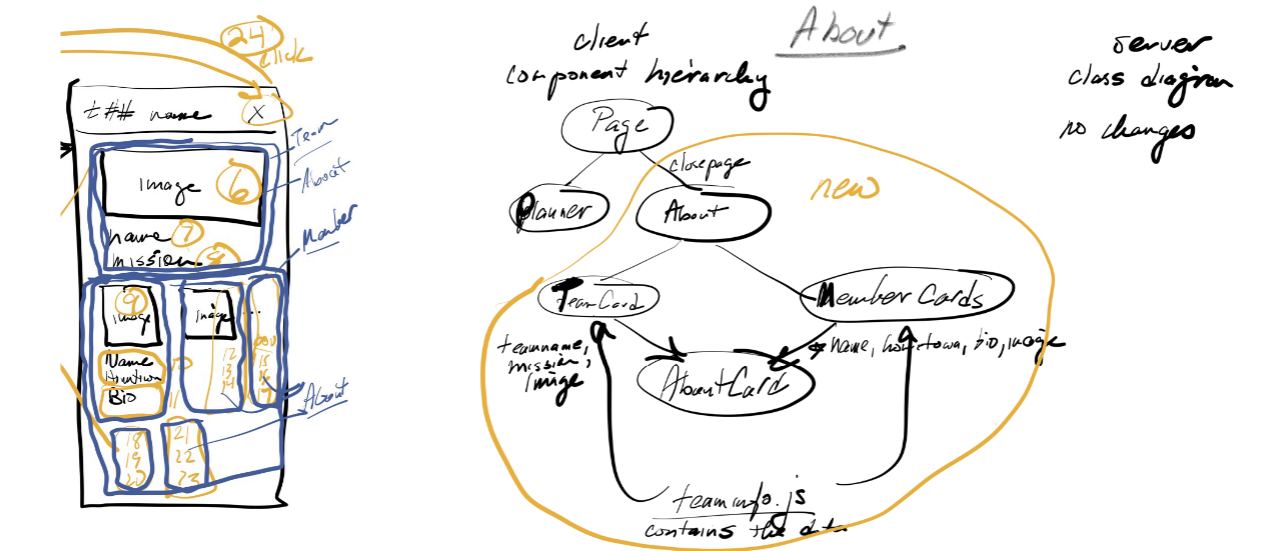 About
24
click
t## name X
Team
image 6
About
name 7
mission
Member
9
image
image
...
Name
10
Hometown
Bio
11
12
13
14
15
16
17
About
18
19
20
21
22
23
client
component hierarchy
Page
closepage
Planner
About
new
TeamCard
Member Cards
teamname,
mission,
image
name, hometown, bio, image
AboutCard
teaminfo.js
contains the data
server
class diagram
no changes